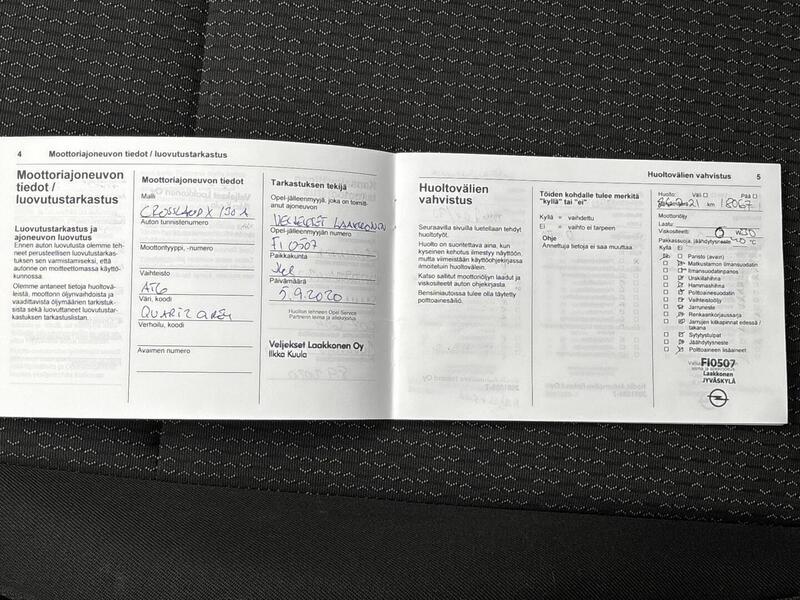 4 Moottoriajoneuvon tiedot / luovutustarkastus
Moottoriajoneuvon
tiedot /
luovutustarkastus
Luovutustarkastus ja
ajoneuvon luovutus
Ennen auton luovutusta olemme teh-
neet perusteellisen luovutustarkas-
tuksen sen varmistamiseksi, että
autonne on moitteettomassa käyttö-
kunnossa.
Olemme antaneet tietoja huoltovä-
leistä, moottorin öljynvaihdoista ja
vaadittavista öljymäärien tarkistuk-
sista sekä luovuttaneet luovutustar-
kastuksen tarkastuslistan.
Moottoriajoneuvon tiedot
Malli
CROSSLAND X 130 A
Auton tunnistenumero
Moottorityyppi, -numero
Vaihteisto
AT6
Väri, koodi
QUARTZ GREY
Verhoilu, koodi
Avaimen numero
Tarkastuksen tekijä
Opel-jälleenmyyjä, joka on toimit-
tanut ajoneuvon
VELJEKSET LAAKKONEN
Opel-jälleenmyyjän numero
FI0507
Paikkakunta
JKL
Päivämäärä
5.9.2020
Huollon tehneen Opel Service
Partnerin leima ja allekirjoitus
Veljekset Laakkonen Oy
Ilkka Kuula
Huoltovälien vahvistus 5
Huoltovälien
vahvistus
Seuraavilla sivuilla luetellaan tehdyt
huoltotyöt.
Huolto on suoritettava aina, kun
kyseinen kehotus ilmestyy näyttöön,
mutta viimeistään käyttöohjekirjassa
ilmoitetuin huoltovälein.
Katso sallitut moottoriöljyn laadut ja
viskositeetit auton ohjekirjasta.
Bensiiniautossa tulee olla täytetty
polttoainesäiliö.
Töiden kohdalle tulee merkitä
"kyllä" tai "ei"
Kyllä = vaihdettu
Ei = vaihto ei tarpeen
Ohje
Annettuja tietoja ei saa muuttaa
Huolto: Väli Pää
km 18067
Moottoriöljy
Laatu:
Viskositeetti: 0 W30
Pakkassuoja, jäähdytysneste °C
Kyllä Ei
Paristo (avain)
Matkustamon ilmansuodatin
Ilmansuodatinpanos
Urakiilahihna
Hammashihna
Polttoainesuodatin
Vaihteistoöljy
Jarruneste
Renkaankorjaussarja
Jarrujen kitkapinnat edessä /
takana
Sytytystulpat
Jäähdytysneste
Polttoaineen lisäaineet
FI0507
Laakkonen
JYVÄSKYLÄ